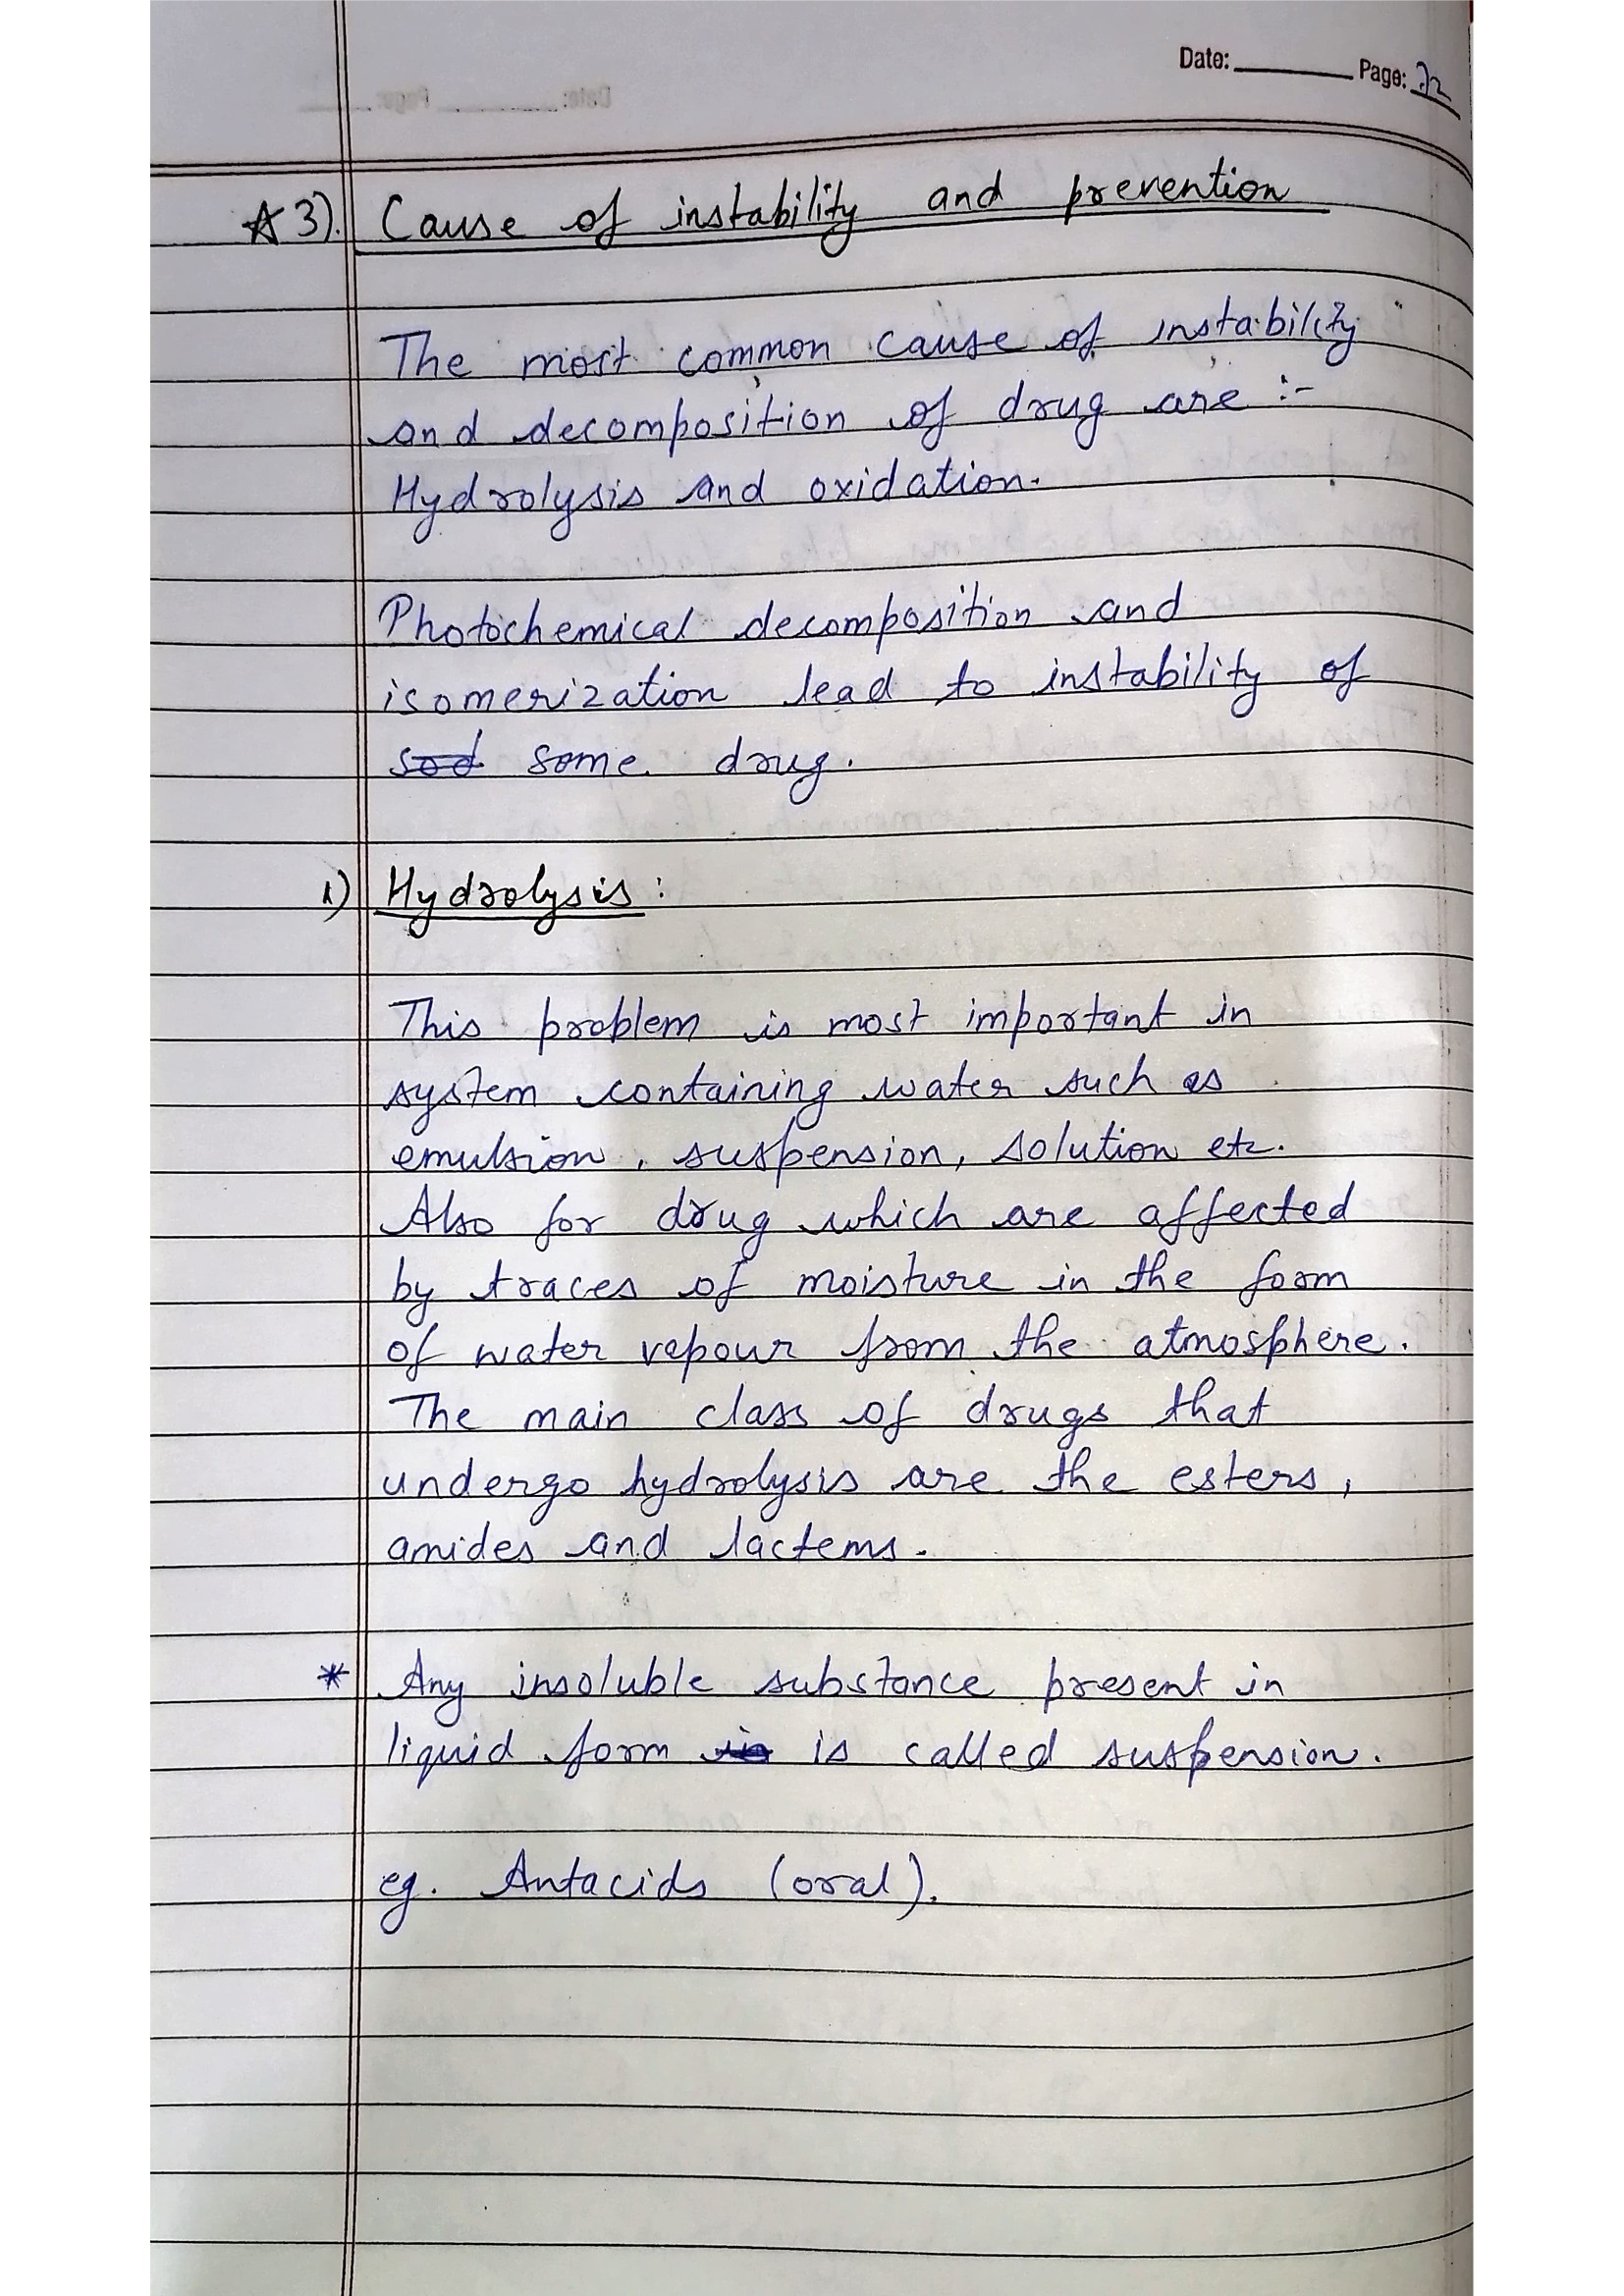 Date: Page: 72
☆ 3). Cause of instability and prevention
The most common cause of instability
and decomposition of drug are :-
Hydrolysis and oxidation.
Photochemical decomposition and
isomerization lead to instability of
some drug.
1) Hydrolysis :
This problem is most important in
system containing water such as
emulsion, suspension, solution etc.
Also for drug which are affected
by traces of moisture in the form
of water vapour from the atmosphere.
The main class of drugs that
undergo hydrolysis are the esters,
amides and lactems.
* Any insoluble substance present in
liquid form is called suspension.
eg. Antacids (oral).